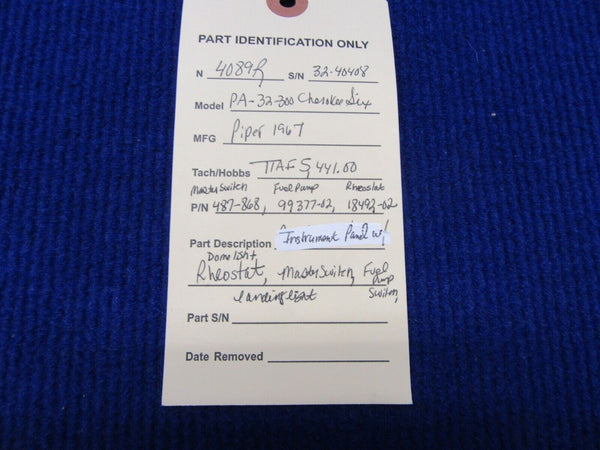 PART IDENTIFICATION ONLY
N 4089R S/N 32-40408
Model PA-32-300 Cherokee Six
MFG Piper 1967
Tach/Hobbs TTAF 5,441.00
Master Switch Fuel Pump Rheostat
P/N 487-868, 99377-02, 18492-02
Part Description Instrument Panel w/
Dome light
Rheostat, Master Switch, Fuel Pump Switch,
landing light
Part S/N
Date Removed